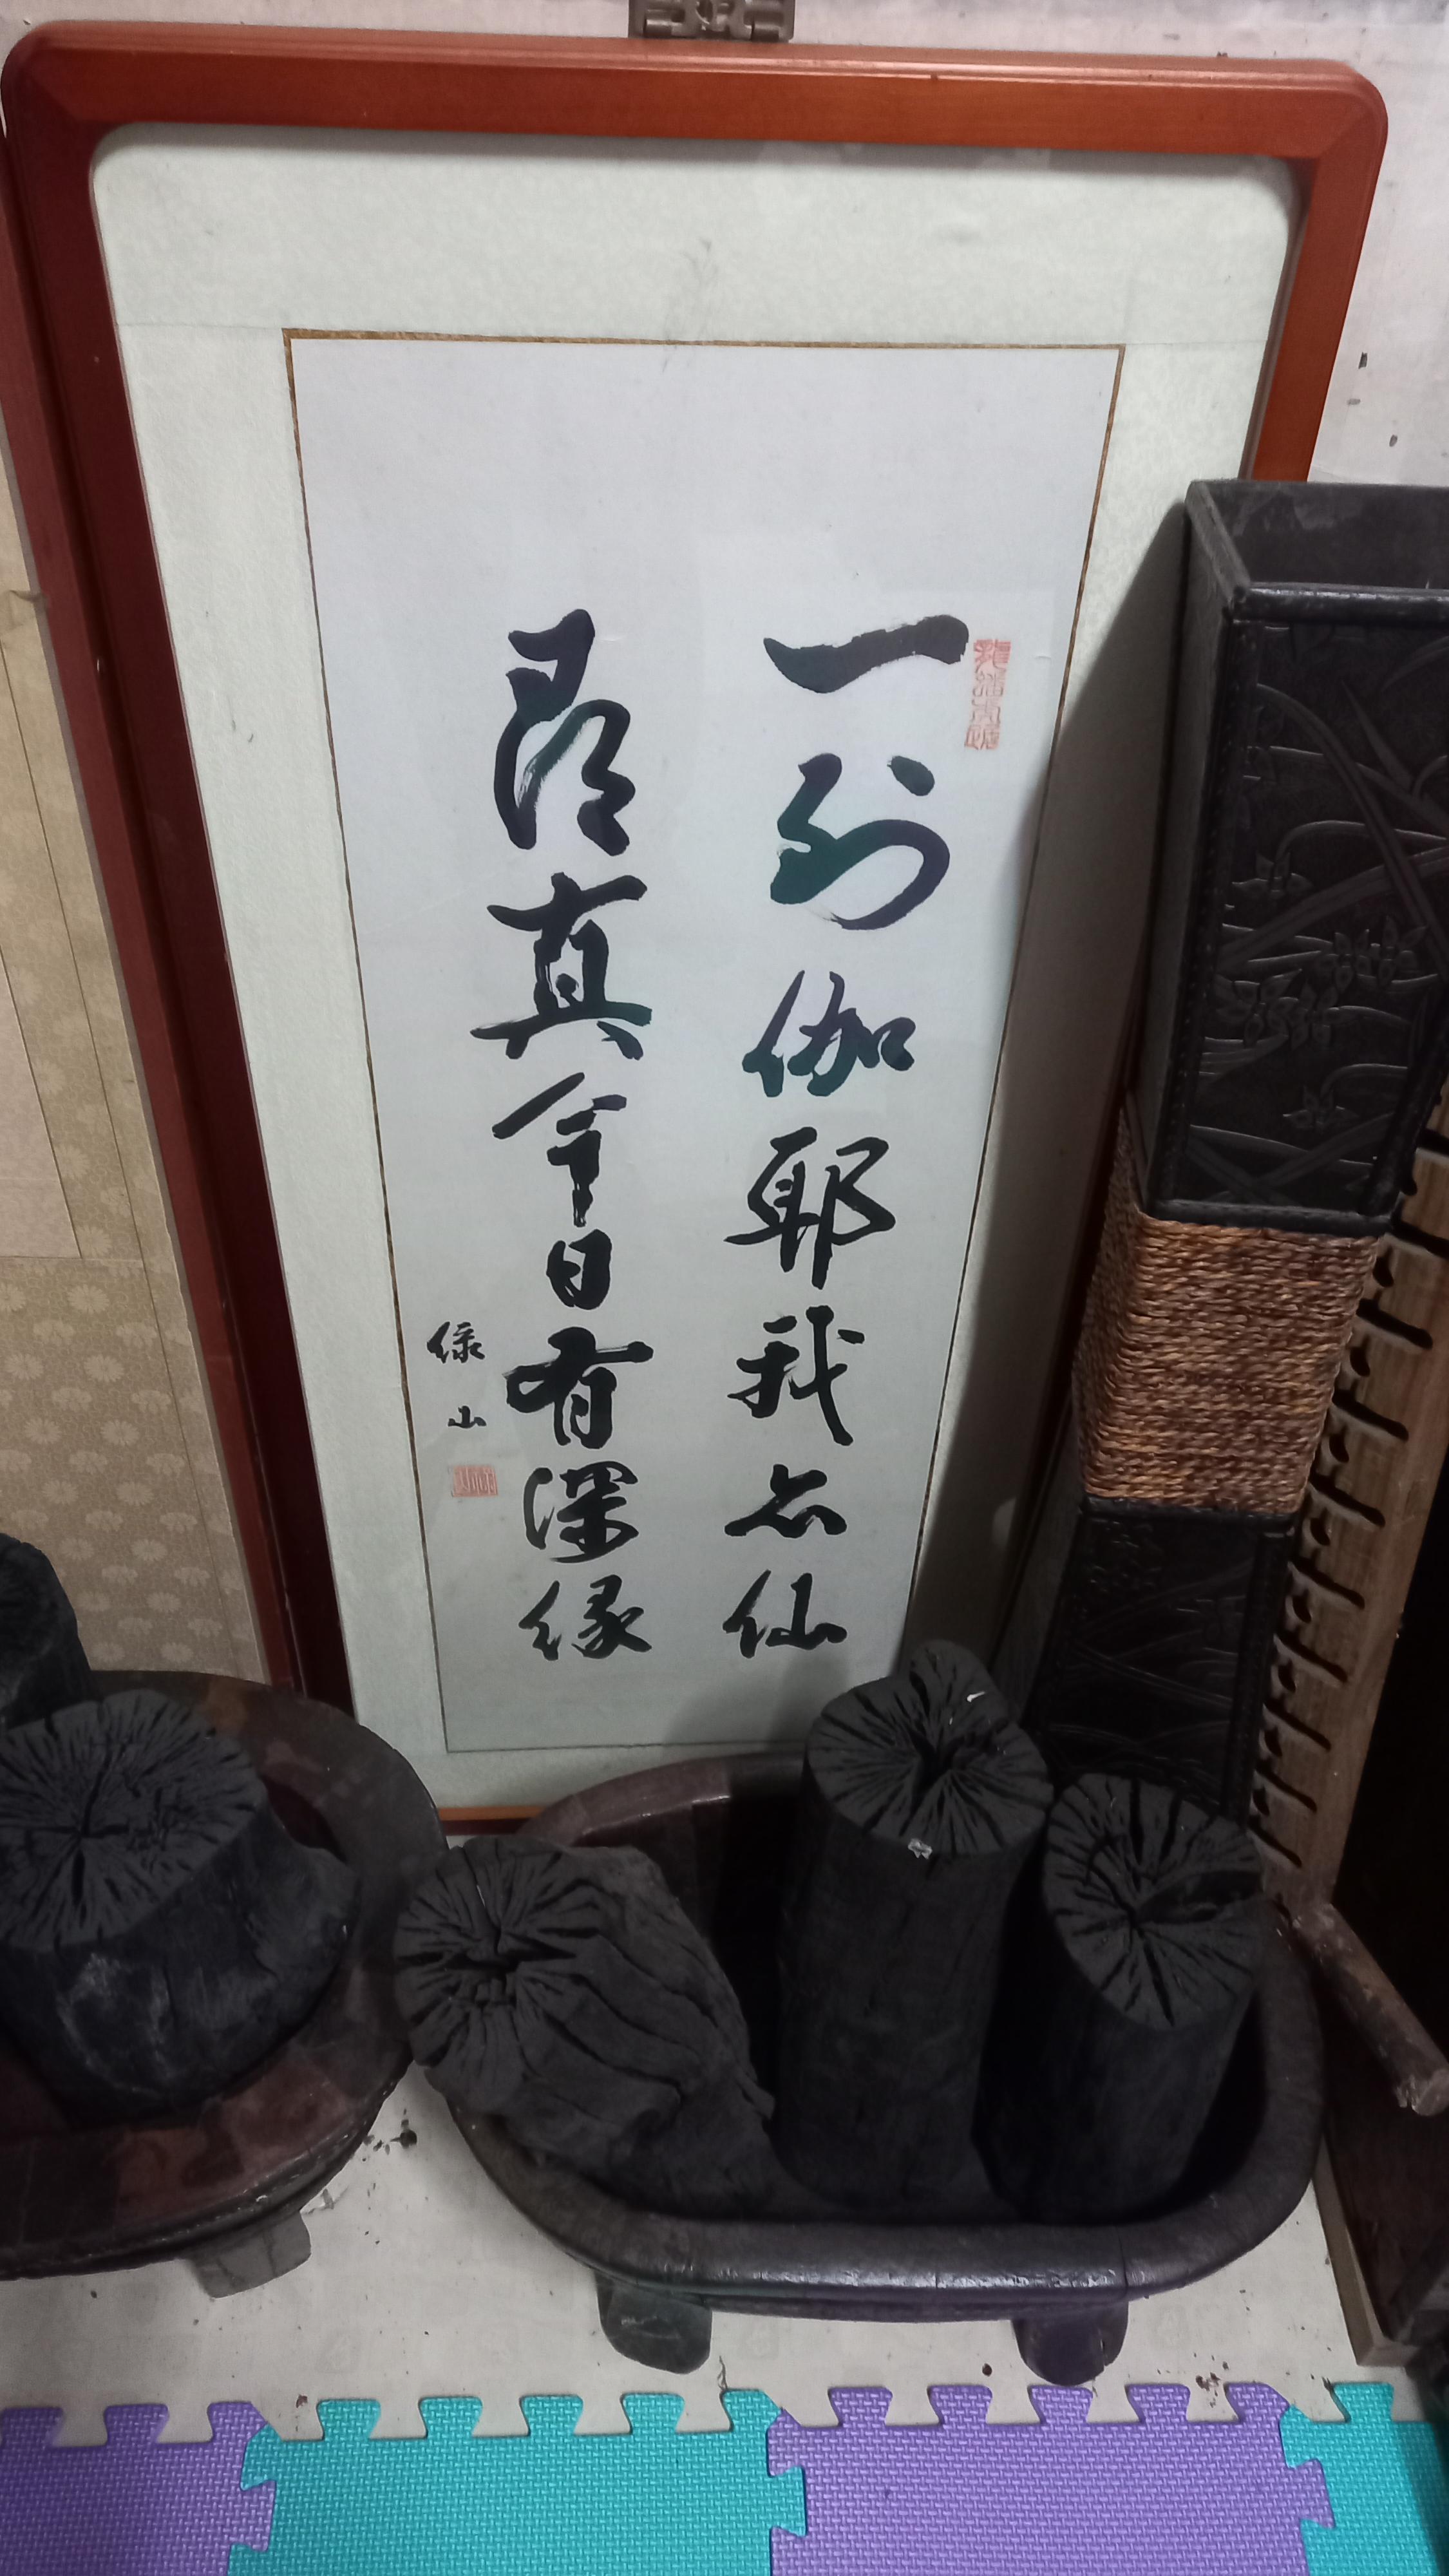 一到伽耶我亦仙
尋真今日有深緣
綠山